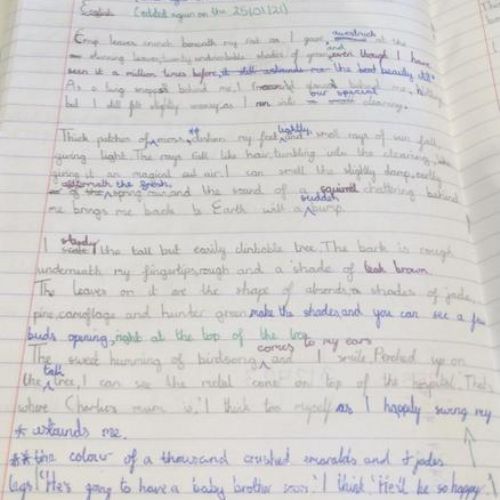 English (edited again on the 25/01/21)
Crisp leaves crunch beneath my feet as I gaze, awestruck at the
stunning leaves, lovely undeniable shades of green, and even though I have
seen it a million times before, it still astounds me the best beauty still *
As a twig snapped behind me, I glanced behind me, nothing
but I still felt slightly uneasy as I ran into our special clearing.
Thick patches of moss, ** cushion my feet and lightly small rays of sun fall,
giving light. The rays fall like hair, tumbling into the clearing,
giving it an magical out air. I can smell the slightly damp, earthy
aftermath the fresh,
spring and the sound of a squirrel chattering behind
me brings me back to Earth with a sudden bump.
I study the tall but easily climbable tree. The bark is rough
underneath my fingertips, rough and a shade of teak brown.
The leaves on it are the shape of almonds shades of jade,
pine, camouflage and hunter green make the shades, and you can see a few
buds opening, right at the top of the tree.
The sweet humming of birdsong comes to my ears and I smile. Perched up on
the tall tree, I can see the metal cone on top of the hospital. 'That's
where Charlie's mum is,' I think too myself as I happily swing my
* astounds me.
** the colour of a thousand crushed emeralds and jades
legs. 'He's going to have a baby brother soon.' I think 'He'll be so happy'